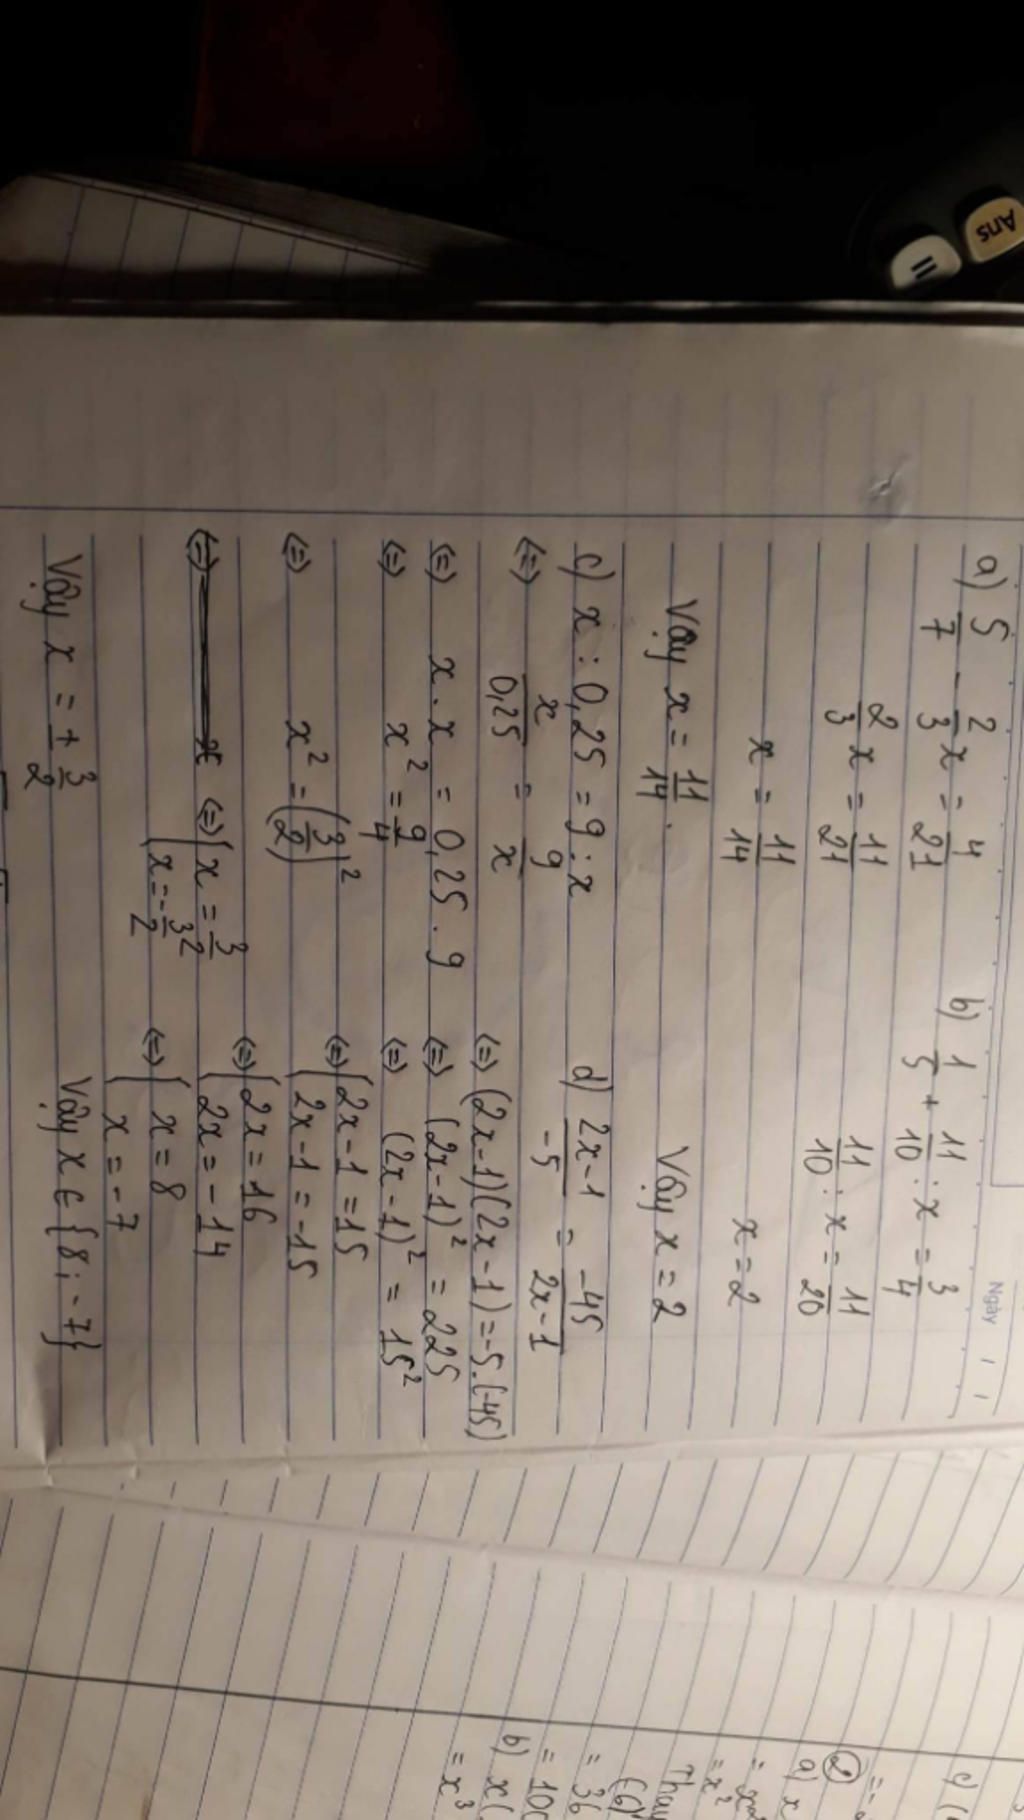 Ans
=
Ngày / /
a) 5/7 - 2/3 x = 4/21
2/3 x = 11/21
x = 11/14
Vậy x = 11/14.
b) 1/5 + 11/10 : x = 3/4
11/10 : x = 11/20
x = 2
Vậy x = 2
c) x : 0,25 = 9 : x
(=) x/0,25 = 9/x
(=) x . x = 0,25 . 9
(=) x² = 9/4
(=) x² = (3/2)²
(=) [ x = 3/2
[ x = -3/2
Vậy x = ± 3/2
d) 2x-1/-5 = -45/2x-1
(=) (2x-1)(2x-1) = -5.(-45)
(=) (2x-1)² = 225
(=) (2x-1)² = 15²
(=) [ 2x-1 = 15
[ 2x-1 = -15
(=) [ 2x = 16
[ 2x = -14
(=) [ x = 8
[ x = -7
Vậy x ∈ {8; -7}
c) (
②
a) x
= x²
Thay
(6)
= 36
= 100
b) x(
= x³